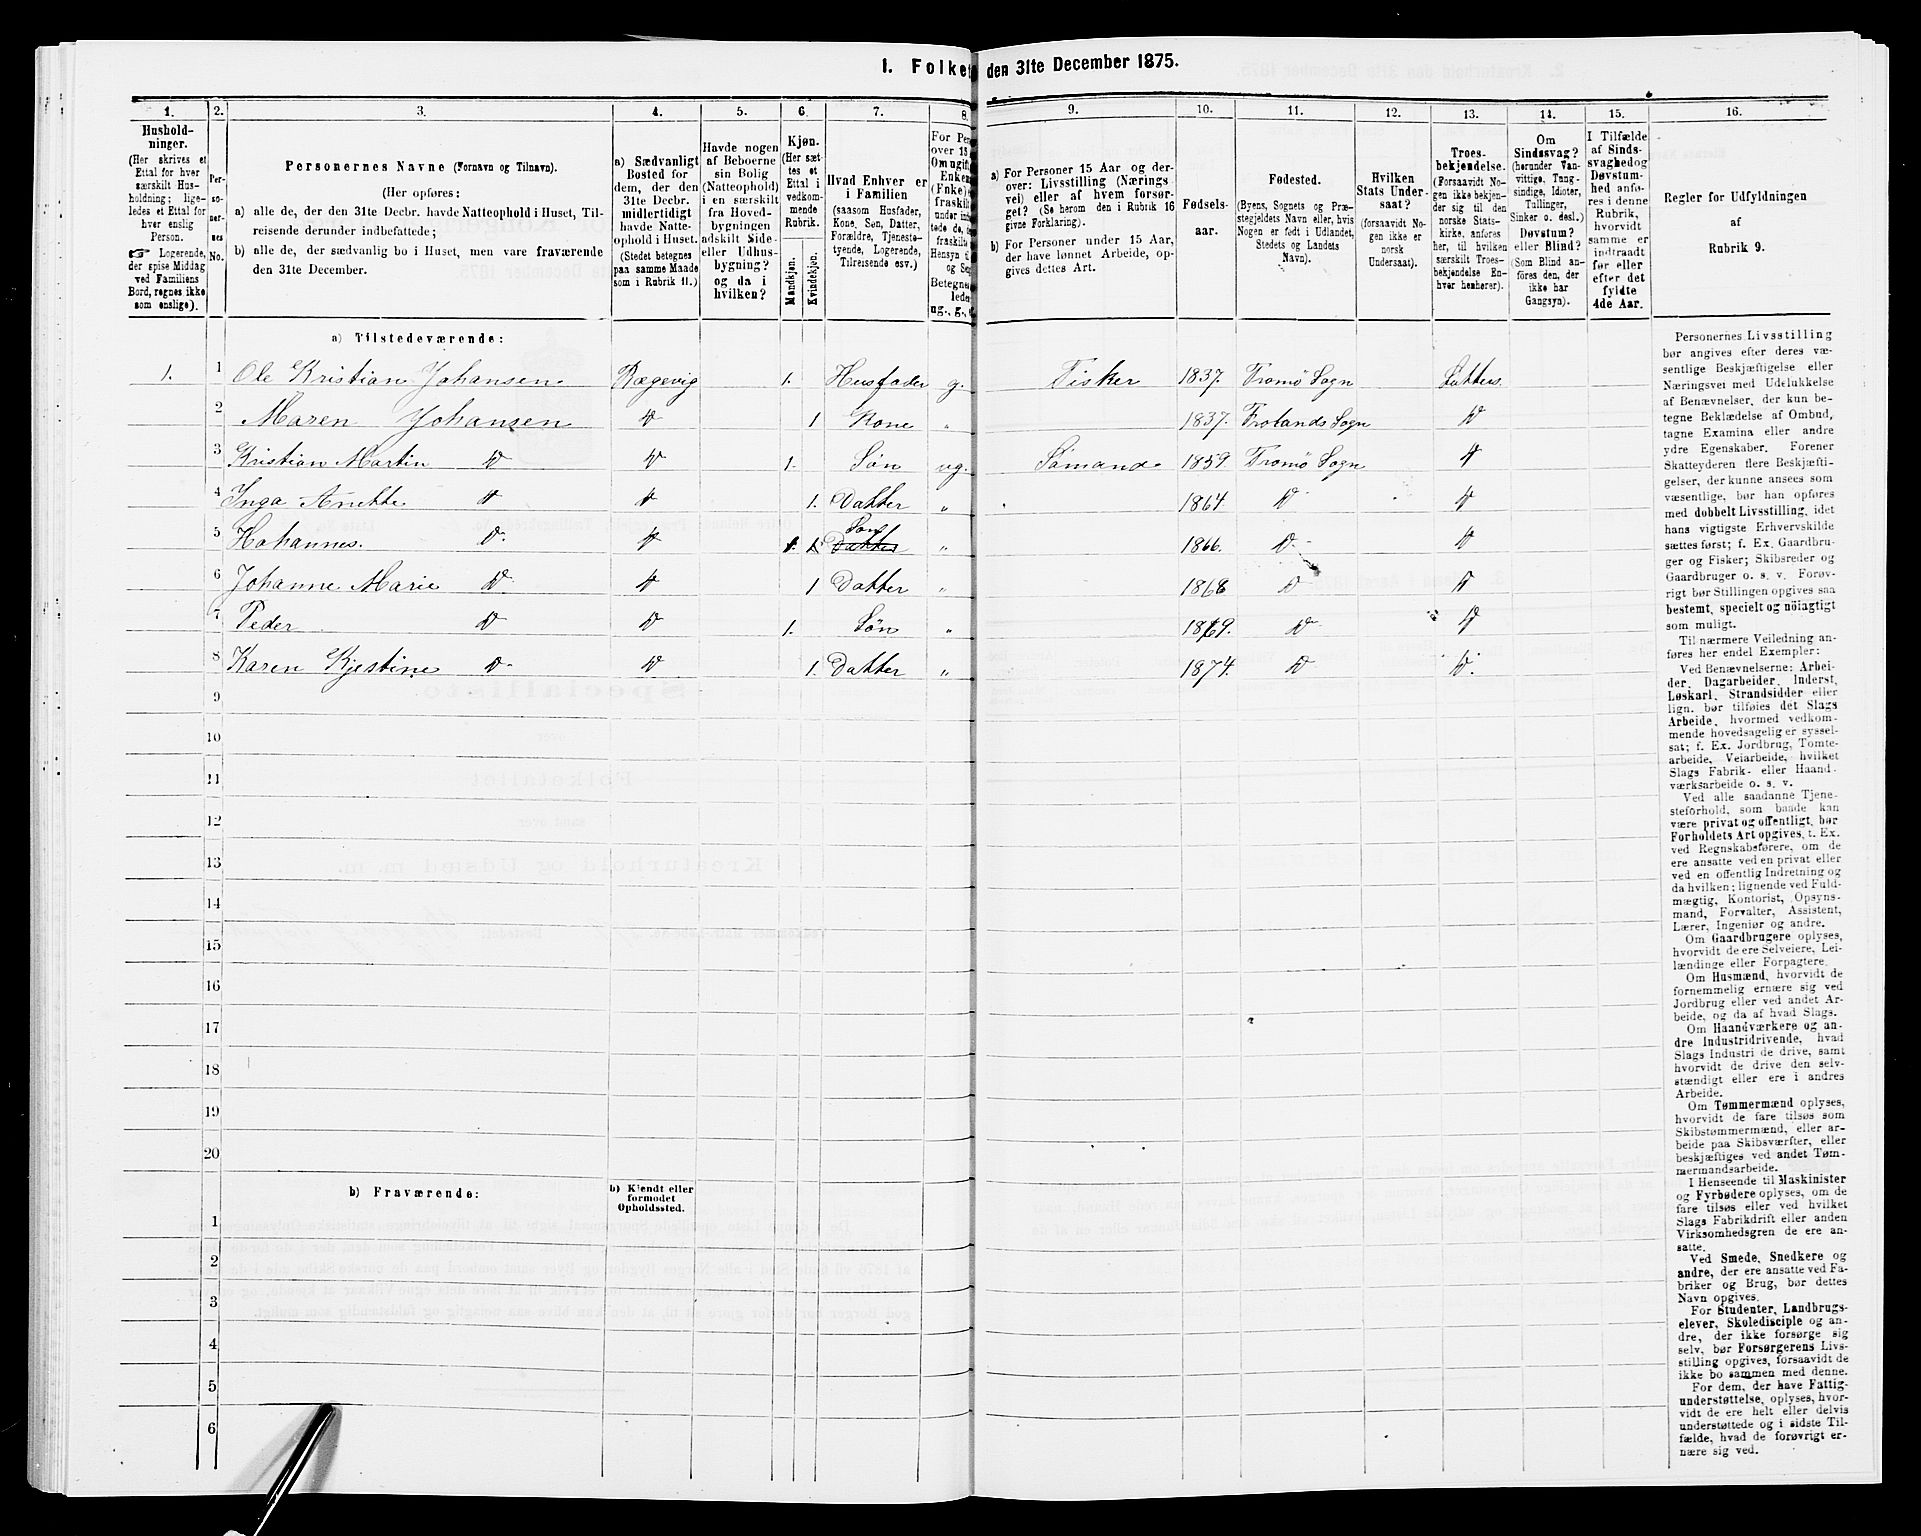 1. Folket
den 31te December 1875.
1.
2.
3.
4.
5.
6.
7.
8.
9.
10.
11.
12.
13.
14.
15.
16.
Hushold-
ninger.
(Her skrives et
Ettal for hver
særskilt Hus-
holdning; lige-
ledes et Ettal for
hver enslig
Person.
☞ Logerende,
der spise Middag
ved Familiens
Bord, regnes ikke
som enslige).
Per-
so-
ner-
nes
No.
Personernes Navne (Fornavn og Tilnavn).
(Her opføres:
a) alle de, der den 31te Decbr. havde Natteophold i Huset, Til-
reisende derunder indbefattede;
b) alle de, der sædvanlig bo i Huset, men vare fraværende
den 31te December.
a) Sædvanligt
Bosted for
dem, der den
31te Decbr.
midlertidigt
havde Natte-
ophold i Huset.
(Stedet betegnes
paa samme Maade
som i Rubrik 11.)
Havde nogen
af Beboerne
sin Bolig
(Natteophold)
i en særskilt
fra Hoved-
bygningen
adskilt Side-
eller Udhus-
bygning?
og da i
hvilken?
Kjøn.
(Her sæt-
tes et
Ettal i
vedkom-
mende
Rubrik.
Mandkjøn.
Kvindekjøn.
Hvad Enhver er
i Familien
(saasom Husfader,
Kone, Søn, Datter,
Forældre, Tjeneste-
tyende, Logerende,
Tilreisende osv.)
For Per
over 15
Om ugift
Enken
(Enke) f
under in
tede de,
fraskilt
Hensyn i
og Se
Betegne
lede
ug., g.,
a) For Personer 15 Aar og der-
over: Livsstilling (Nærings-
vei) eller af hvem forsør-
get? (Se herom den i Rubrik 16
givne Forklaring).
b) For Personer under 15 Aar,
der have lønnet Arbeide, op-
gives dettes Art.
Fødsels-
aar.
Fødested.
(Byens, Sognets og Præ-
stegjeldets Navn eller, hvis
Nogen er født i Udlandet,
Stedets og Landets
Navn).
Hvilken
Stats Under-
saat?
(forsaavidt No-
gen ikke er
norsk
Undersaat).
Troes-
bekjendelse.
(Forsaavidt No-
gen ikke bekjen-
der sig til den
norske Stats-
kirke, anføres
her, til hvilken
særskilt Troes-
bekjendelse En-
hver henhører).
Om
Sindssvag?
(herunder Van-
vittige, Tung-
sindige, Idioter,
Tullinger,
Sinker o. desl.)
Døvstum?
eller Blind?
(Som Blind an-
føres den, der
ikke har
Gangsyn).
I Tilfælde
af Sinds-
svaghed og
Døvstum-
hed anfø-
res i denne
Rubrik,
hvorvidt
samme er
indtraadt
før eller
efter det
fyldte
4de Aar.
Regler for Udfyldningen
af
Rubrik 9.
a) Tilstedeværende:
1. 1 Ole Kristian Johansen Rægevig 1. Husfader g. Fisker 1837. Tromø Sogn Luthers
2 Maren Johansen D 1 Kone „ 1837. Frolands Sogn D
3 Kristian Martin D D 1. Søn ug. Sømand 1859 Tromø Sogn D
4 Inga Anette D D 1. Datter „ 1864. D D
5 Hohannes. D D 1. 1. Datter Søn „ 1866. D D
6 Johanne Marie D. D 1 Datter „ 1868 D D
7 Peder D D 1. Søn „ 1869. D D
8 Karen Kjestine D D 1. Datter „ 1874. D D.
9
10
11
12
13
14
15
16
17
18
19
20
b) Fraværende:
b) Kjendt eller
formodet
Opholdssted.
1
2
3
4
5
6
Personernes Livsstilling
bør angives efter deres væ-
sentlige Beskjæftigelse eller
Næringsvei med Udelukkelse
af Benævnelser, der kun be-
tegne Beklædelse af Ombud,
tagne Examina eller andre
ydre Egenskaber. Forener
Skatteyderen flere Beskjæfti-
gelser, der kunne ansees som
væsentlige, bør han opføres
med dobbelt Livsstilling, idet
hans vigtigste Erhvervskilde
sættes først; f. Ex. Gaardbru-
ger og Fisker; Skibsreder og
Gaardbruger o. s. v. Forøv-
rigt bør Stillingen opgives saa
bestemt, specielt og nöiagtigt
som muligt.
Til nærmere Veiledning an-
føres her endel Exempler:
Ved Benævnelserne: Arbei-
der, Dagarbeider, Inderst,
Løskarl, Strandsidder eller
lign. bør tilføies det Slags
Arbeide, hvormed vedkom-
mende hovedsagelig er syssel-
sat; f. Ex. Jordbrug, Tomte-
arbeide, Veiarbeide, hvilket
Slags Fabrik- eller Haand-
værksarbeide o. s. v.
Ved alle saadanne Tjene-
steforhold, som baade kan
være privat og offentligt, bør
Forholdets Art opgives, t. Ex.
ved Regnskabsførere, om de
ere ansatte ved en privat eller
ved en offentlig Indretning og
da hvilken; lignende ved Fuld-
mægtig, Kontorist, Opsyns-
mand, Forvalter, Assistent,
Lærer, Ingeniør og andre.
Om Gaardbrugere oplyses,
hvorvidt de ere Selveiere, Lei-
lændinge eller Forpagtere.
Om Husmænd, hvorvidt de
fornemmelig ernære sig ved
Jordbrug eller ved andet Ar-
beide, og da af hvad Slags.
Om Haandværkere og an-
dre Industridrivende, hvad
Slags Industri de drive, samt
hvorvidt de drive den selv-
stændigt eller ere i andres
Arbeide.
Om Tømmermænd oplyses,
hvorvidt de fare tilsøs som
Skibstømmermænd, eller ar-
beide paa Skibsværfter, eller
beskjæftiges ved andet Tøm-
mermandsarbeide.
I Henseende til Maskinister
og Fyrbødere oplyses, om de
fare tilsøs eller ved hvilket
Slags Fabrikdrift eller anden
Virksomhedsgren de ere an-
satte.
Ved Smede, Snedkere og
andre, der ere ansatte ved Fa-
briker og Brug, bør dettes
Navn opgives.
For Studenter, Landbrugs-
elever, Skoledisciple og an-
dre, der ikke forsørge sig
selv, bør Forsørgerens Livs-
stilling opgives, forsaavidt de
ikke bo sammen med denne.
For dem, der have Fattig-
understøttelse, oplyses, hvor-
vidt de ere helt eller delvis
understøttede og i sidste Til-
fælde, hvad de forøvrigt er-
nære sig ved.